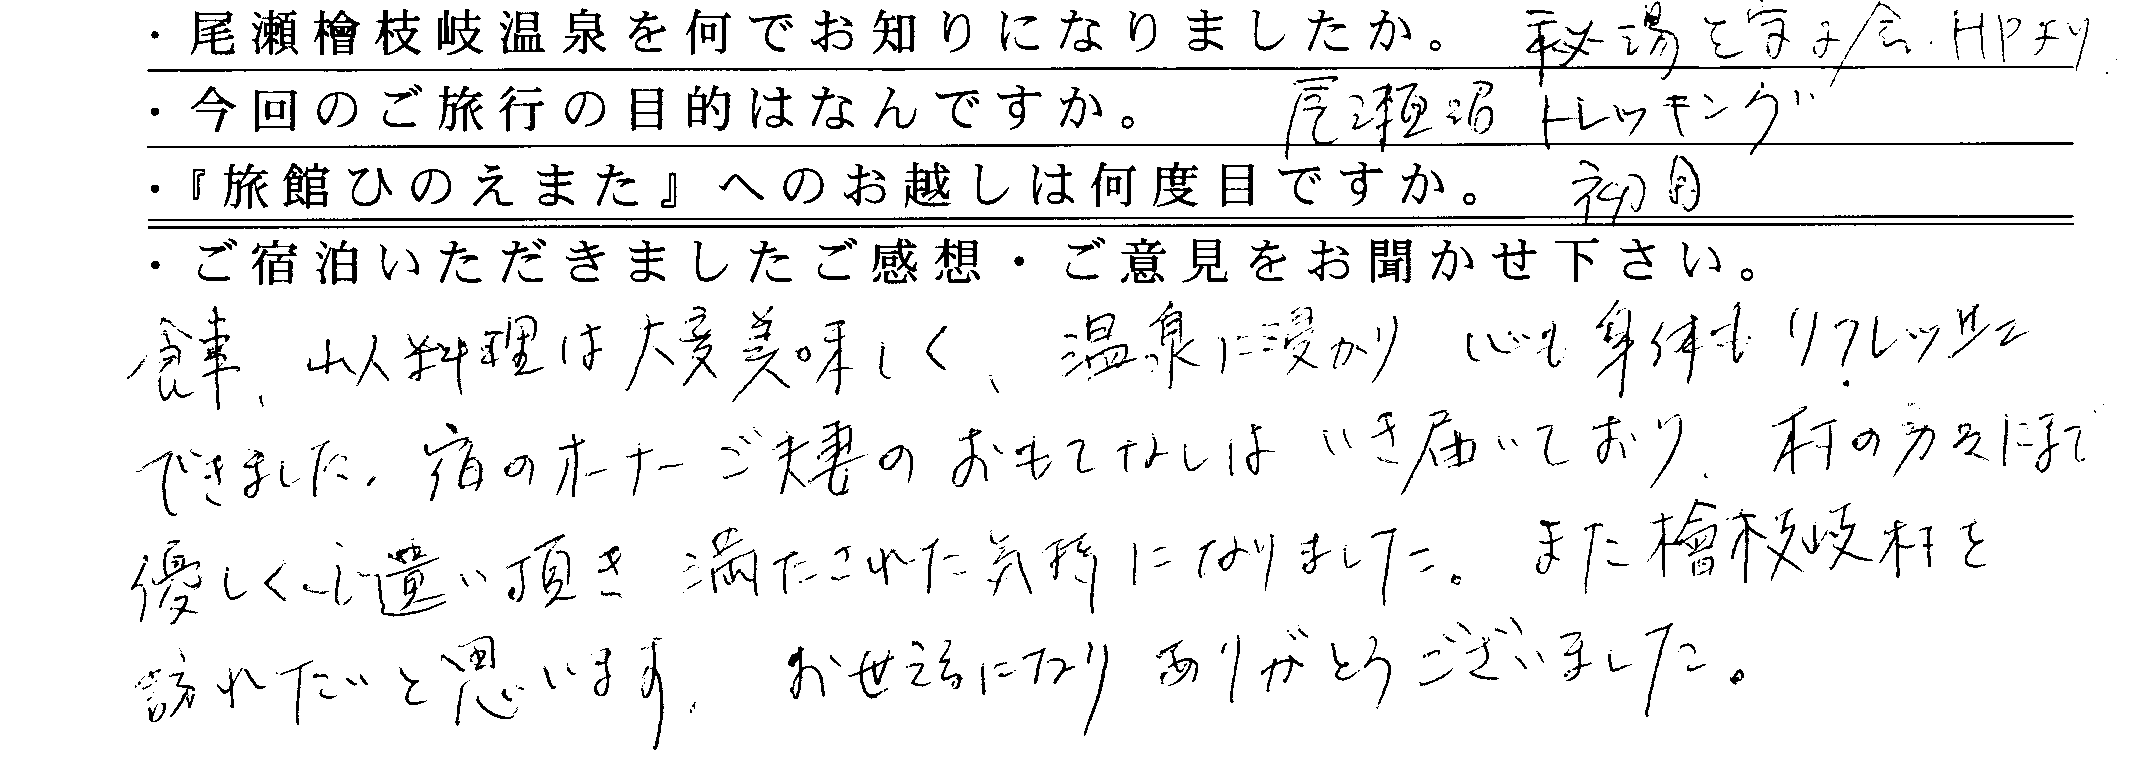 ・尾瀬檜枝岐温泉を何でお知りになりましたか。 秘湯を守る会.HPより
・今回のご旅行の目的はなんですか。 尾瀬沼 トレッキング
・『旅館ひのえまた』へのお越しは何度目ですか。 初
・ご宿泊いただきましたご感想・ご意見をお聞かせ下さい。
食事、山人料理は大変美味しく、温泉に浸かり 心も身体もリフレッシュ
できました。宿のオーナーご夫妻のおもてなしはいき届いており、村の方々にまで
優しく心遣い頂き 満たされた気持になりました。また檜枝岐村を
訪れたいと思います。お世話になりありがとうございました。